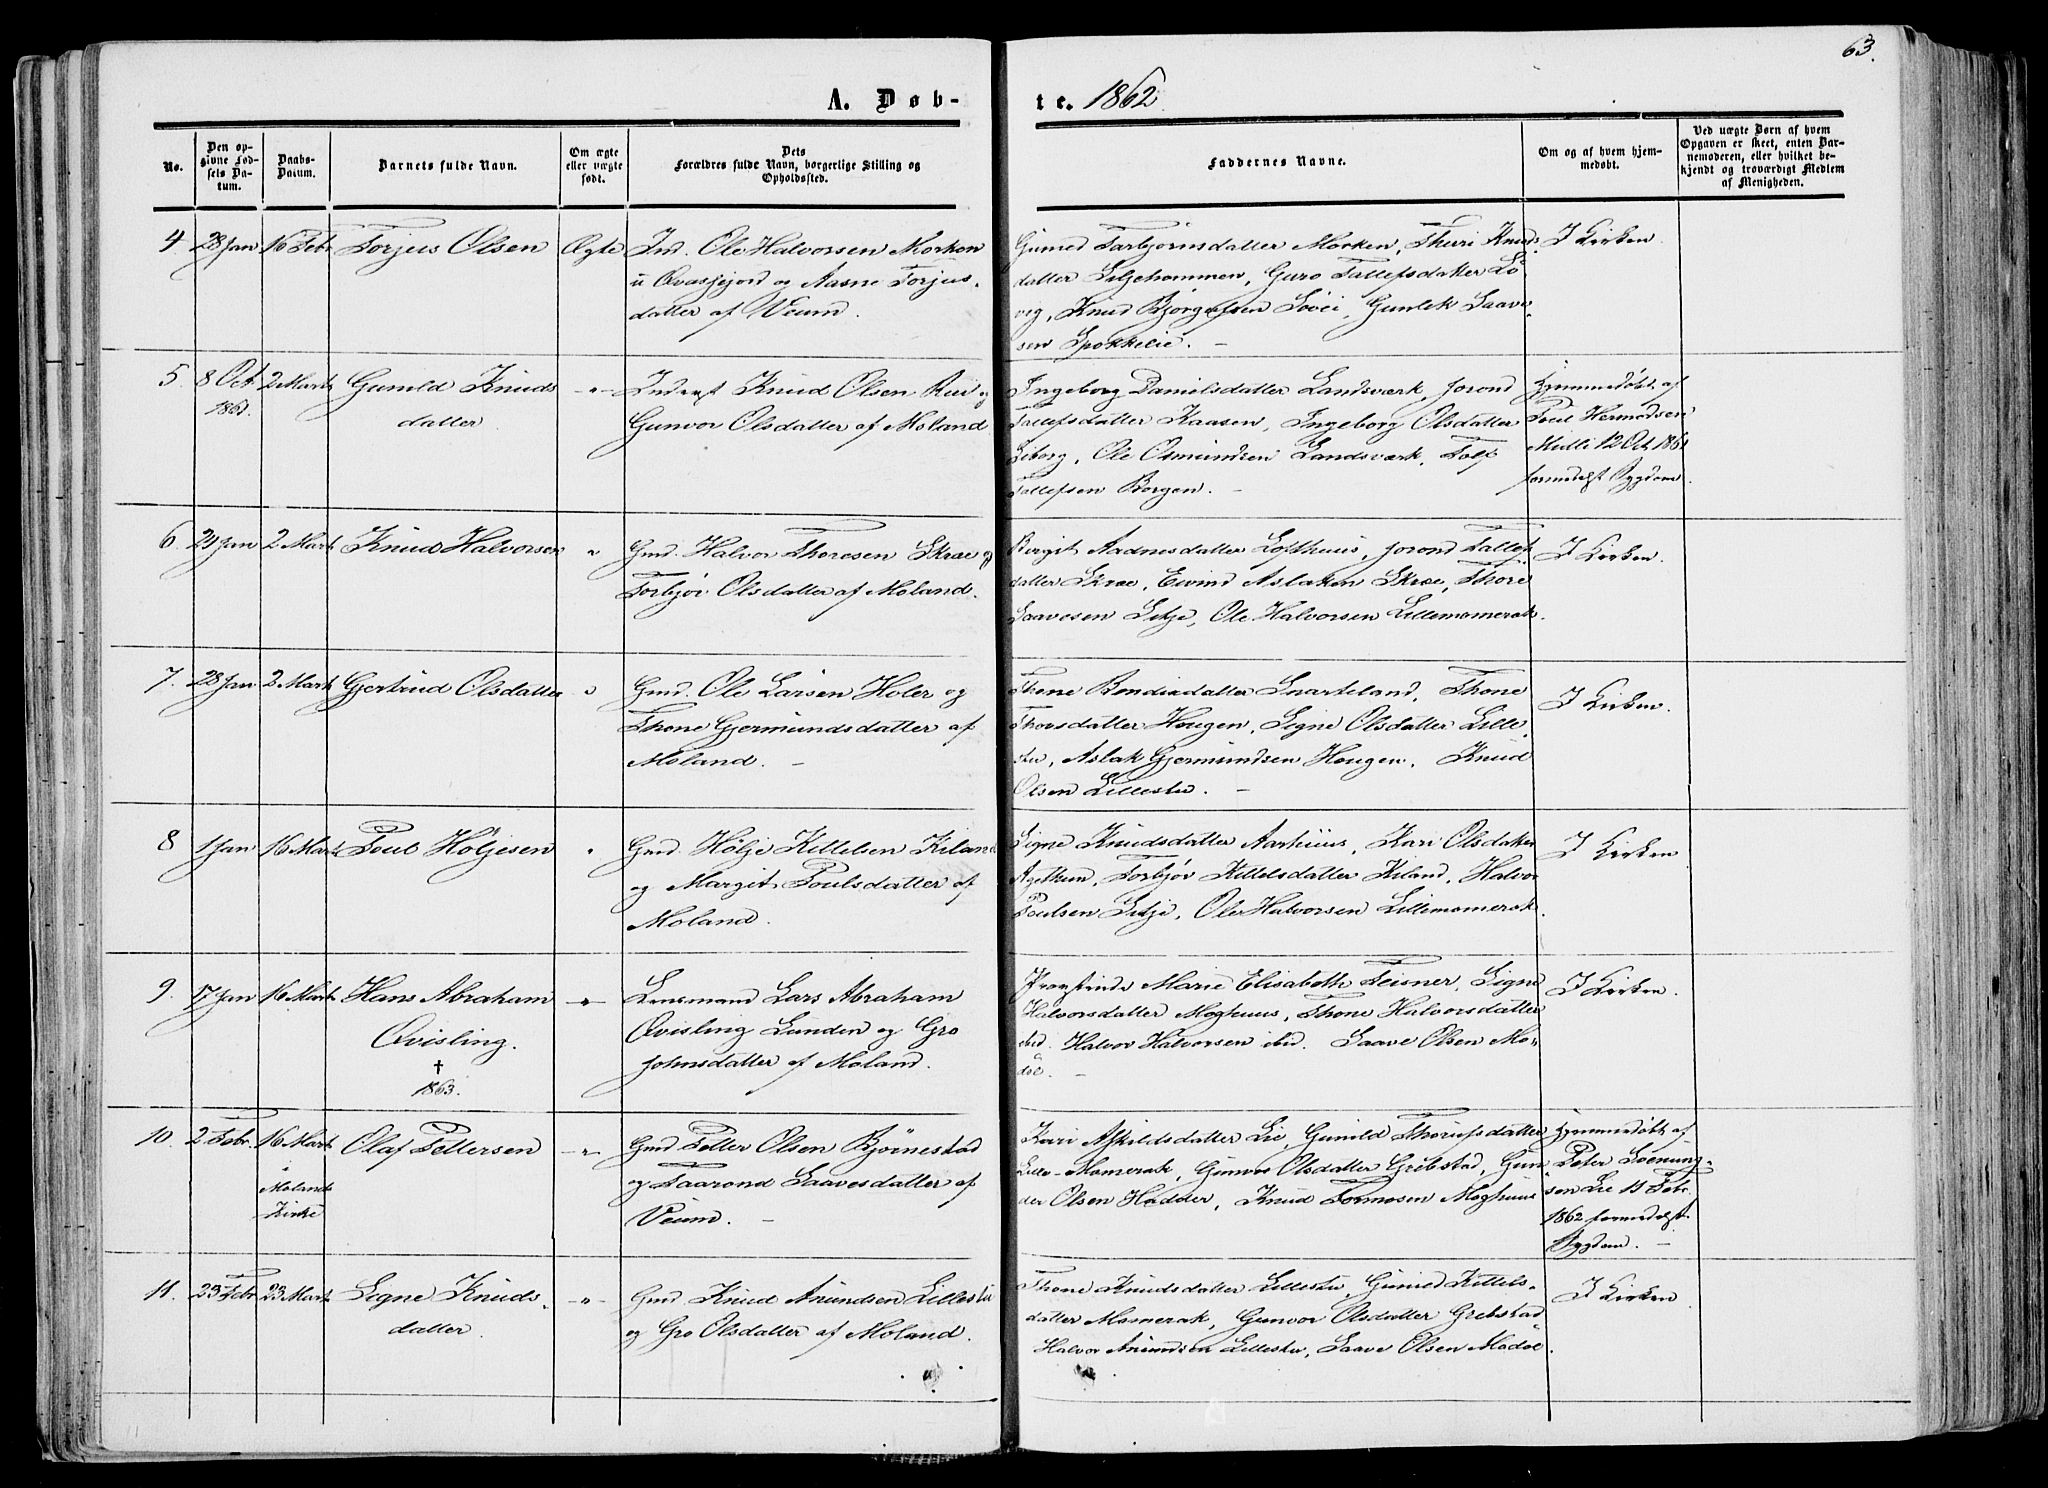 63.
A. Døb-
te. 1862.
No.
Den op-
givne Fød-
sels Da-
tum.
Daabs-
Datum.
Barnets fulde Navn.
Om ægte
eller uægte
født.
Dets
Forældres fulde Navn, borgerlige Stilling og
Opholdssted.
Faddernes Navne.
Om og af hvem hjem-
medøbt.
Ved uægte Børn af hvem
Opgaven er skeet, enten Bar-
nemoderen, eller hvilket be-
kjendt og troværdigt Medlem
af Menigheden.
4. 28 Jan 16 Febr Torjus Olsen Ægte Ind. Ole Halvorsen Morken
u Qvasfjord og Aasne Torjus-
datter af Veum.
Gunild Tarbjørnsdatter Morken, Thuri Knuds-
datter Liljehammen, Guro Tallefsdatter Lö-
vig, Knud Björgufsen Lövei, Gunlek Saave-
sen Spokkelie. -
I Kirken.
5. 8 Oct 2 Marts Gunild Knuds
1861.
datter
-"- Inderst Knud Olsen Rui og
Gunvor Olsdatter af Moland
Ingeborg Danielsdatter Landsværk, Jorond
Tallefsdatter Kaasen, Ingeborg Olsdatter
Liborg, Ole Osmundsen Landsværk, Tolf
Tallefsen Borgen. -
Hjemmedöbt af
Poul Hermodsen
Midli 12 Oct 1861
formedelst Sygdom.
6. 29 Jan 2 Marts Knud Halvorsen " Gmd. Halvor Thoresen Skræ og
Torbjör Olsdatter af Moland.
Bergit Aadnesdatter Lofthuus, Jorond Tallefs
datter Skræ, Eivind Aslaksen Skræ, Thore
Saavesen Litje, Ole Halvorsen Lillemomerak.
I Kirken.
7. 28 Jan 2 Marts Gjertrud Olsdatter " Gmd. Ole Larsen Holer og
Thone Gjermundsdatter af
Moland. -
Thone Bendixdatter Snarteland, Thone
Thorsdatter Hougen, Signe Olsdatter Lille-
stu, Aslak Gjermundsen Hougen, Knud
Olsen Lillestu. -
I Kirken.
8 1 Jan 16 Marts Poul Höljesen " Gmd. Hölje Kittelsen Kiland
og Margit Poulsdatter af
Moland.
Signe Knudsdatter Aarhuus, Kari Olsdatter
Agethun, Torbjör Kittelsdatter Kiland, Halvor
Poulsen Litje, Ole Halvorsen Lillemomerak.
I Kirken
9. 17 Jan 16 Marts Hans Abraham
Qvisling.
†
1863.
-"- Lensmand Lars Abraham
Qvisling Lunden og Gro
Johnsdatter af Moland.
Provstinde Marie Elisabeth Teisner, Signe
Halvorsdatter Moghuus, Thone Halvorsdatter
ibid. Halvor Halvorsen ibid. Saave Olsen Mo-
dal. -
I Kirken.
10. 2 Febr. 16 Marts Olaf Pettersen
i
Molands
Kirke
-"- Gmd Petter Olsen Björnestad
og Taarond Saavesdatter af
Veum. -
Kari Askildsdatter Lie, Gunild Thorufsdatter
Lille-Momerak, Gunvor Olsdatter Grebstad, Gun-
der Olsen Hadder, Knud Tormosen Moghuus
Hjemmedöbt af
Peter Soenung-
sen Lie 15 Febr.
1862 formedelst
Sygdom. -
11. 23 Febr 23 Marts Signe Knuds-
datter.
-"- Gmd Knud Anundsen Lillestu
og Gro Olsdatter af Moland.
Thone Knudsdatter Lillestu, Gunild Kittels-
datter Momerak, Gunvor Olsdatter Grebstad
Halvor Anundsen Lillestu, Saave Olsen Modal.
I Kirken